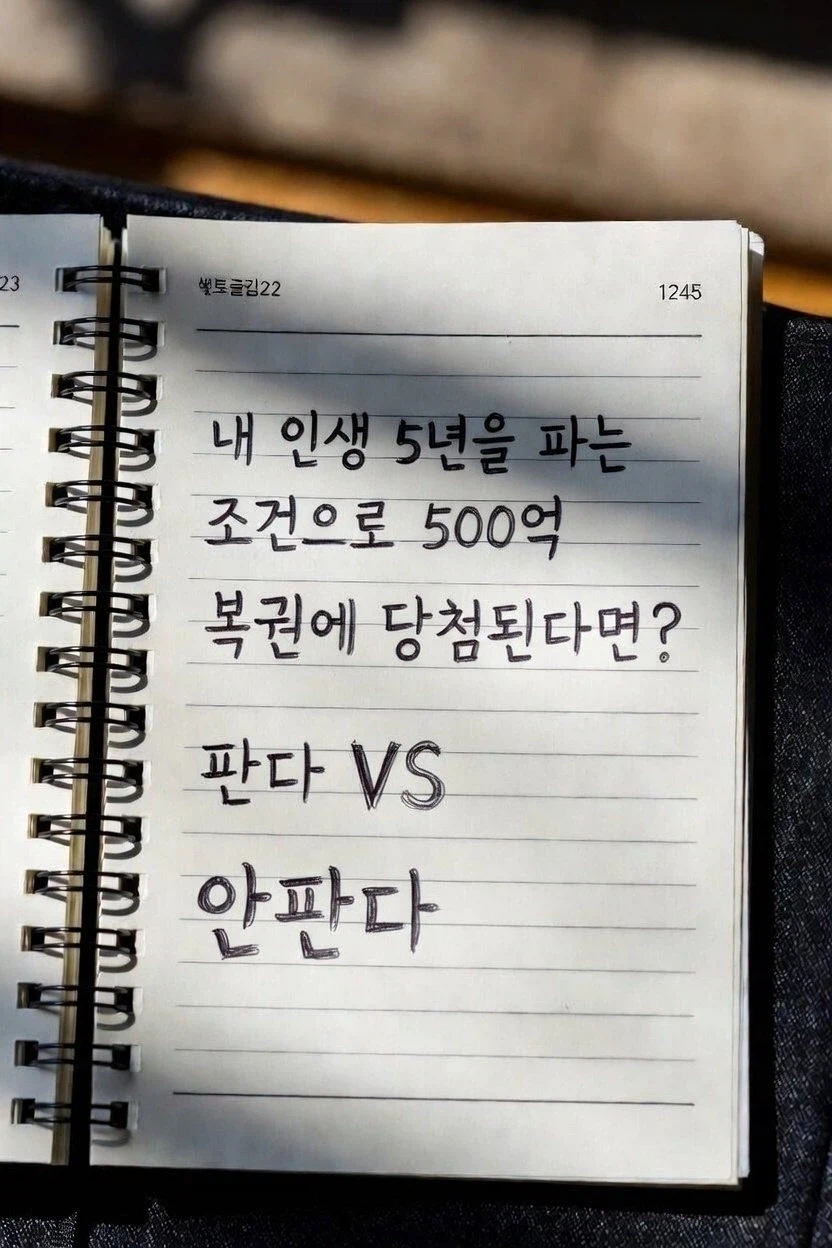 23
22
1245
내 인생 5년을 파는
조건으로 500억
복권에 당첨된다면?
판다 VS
안판다